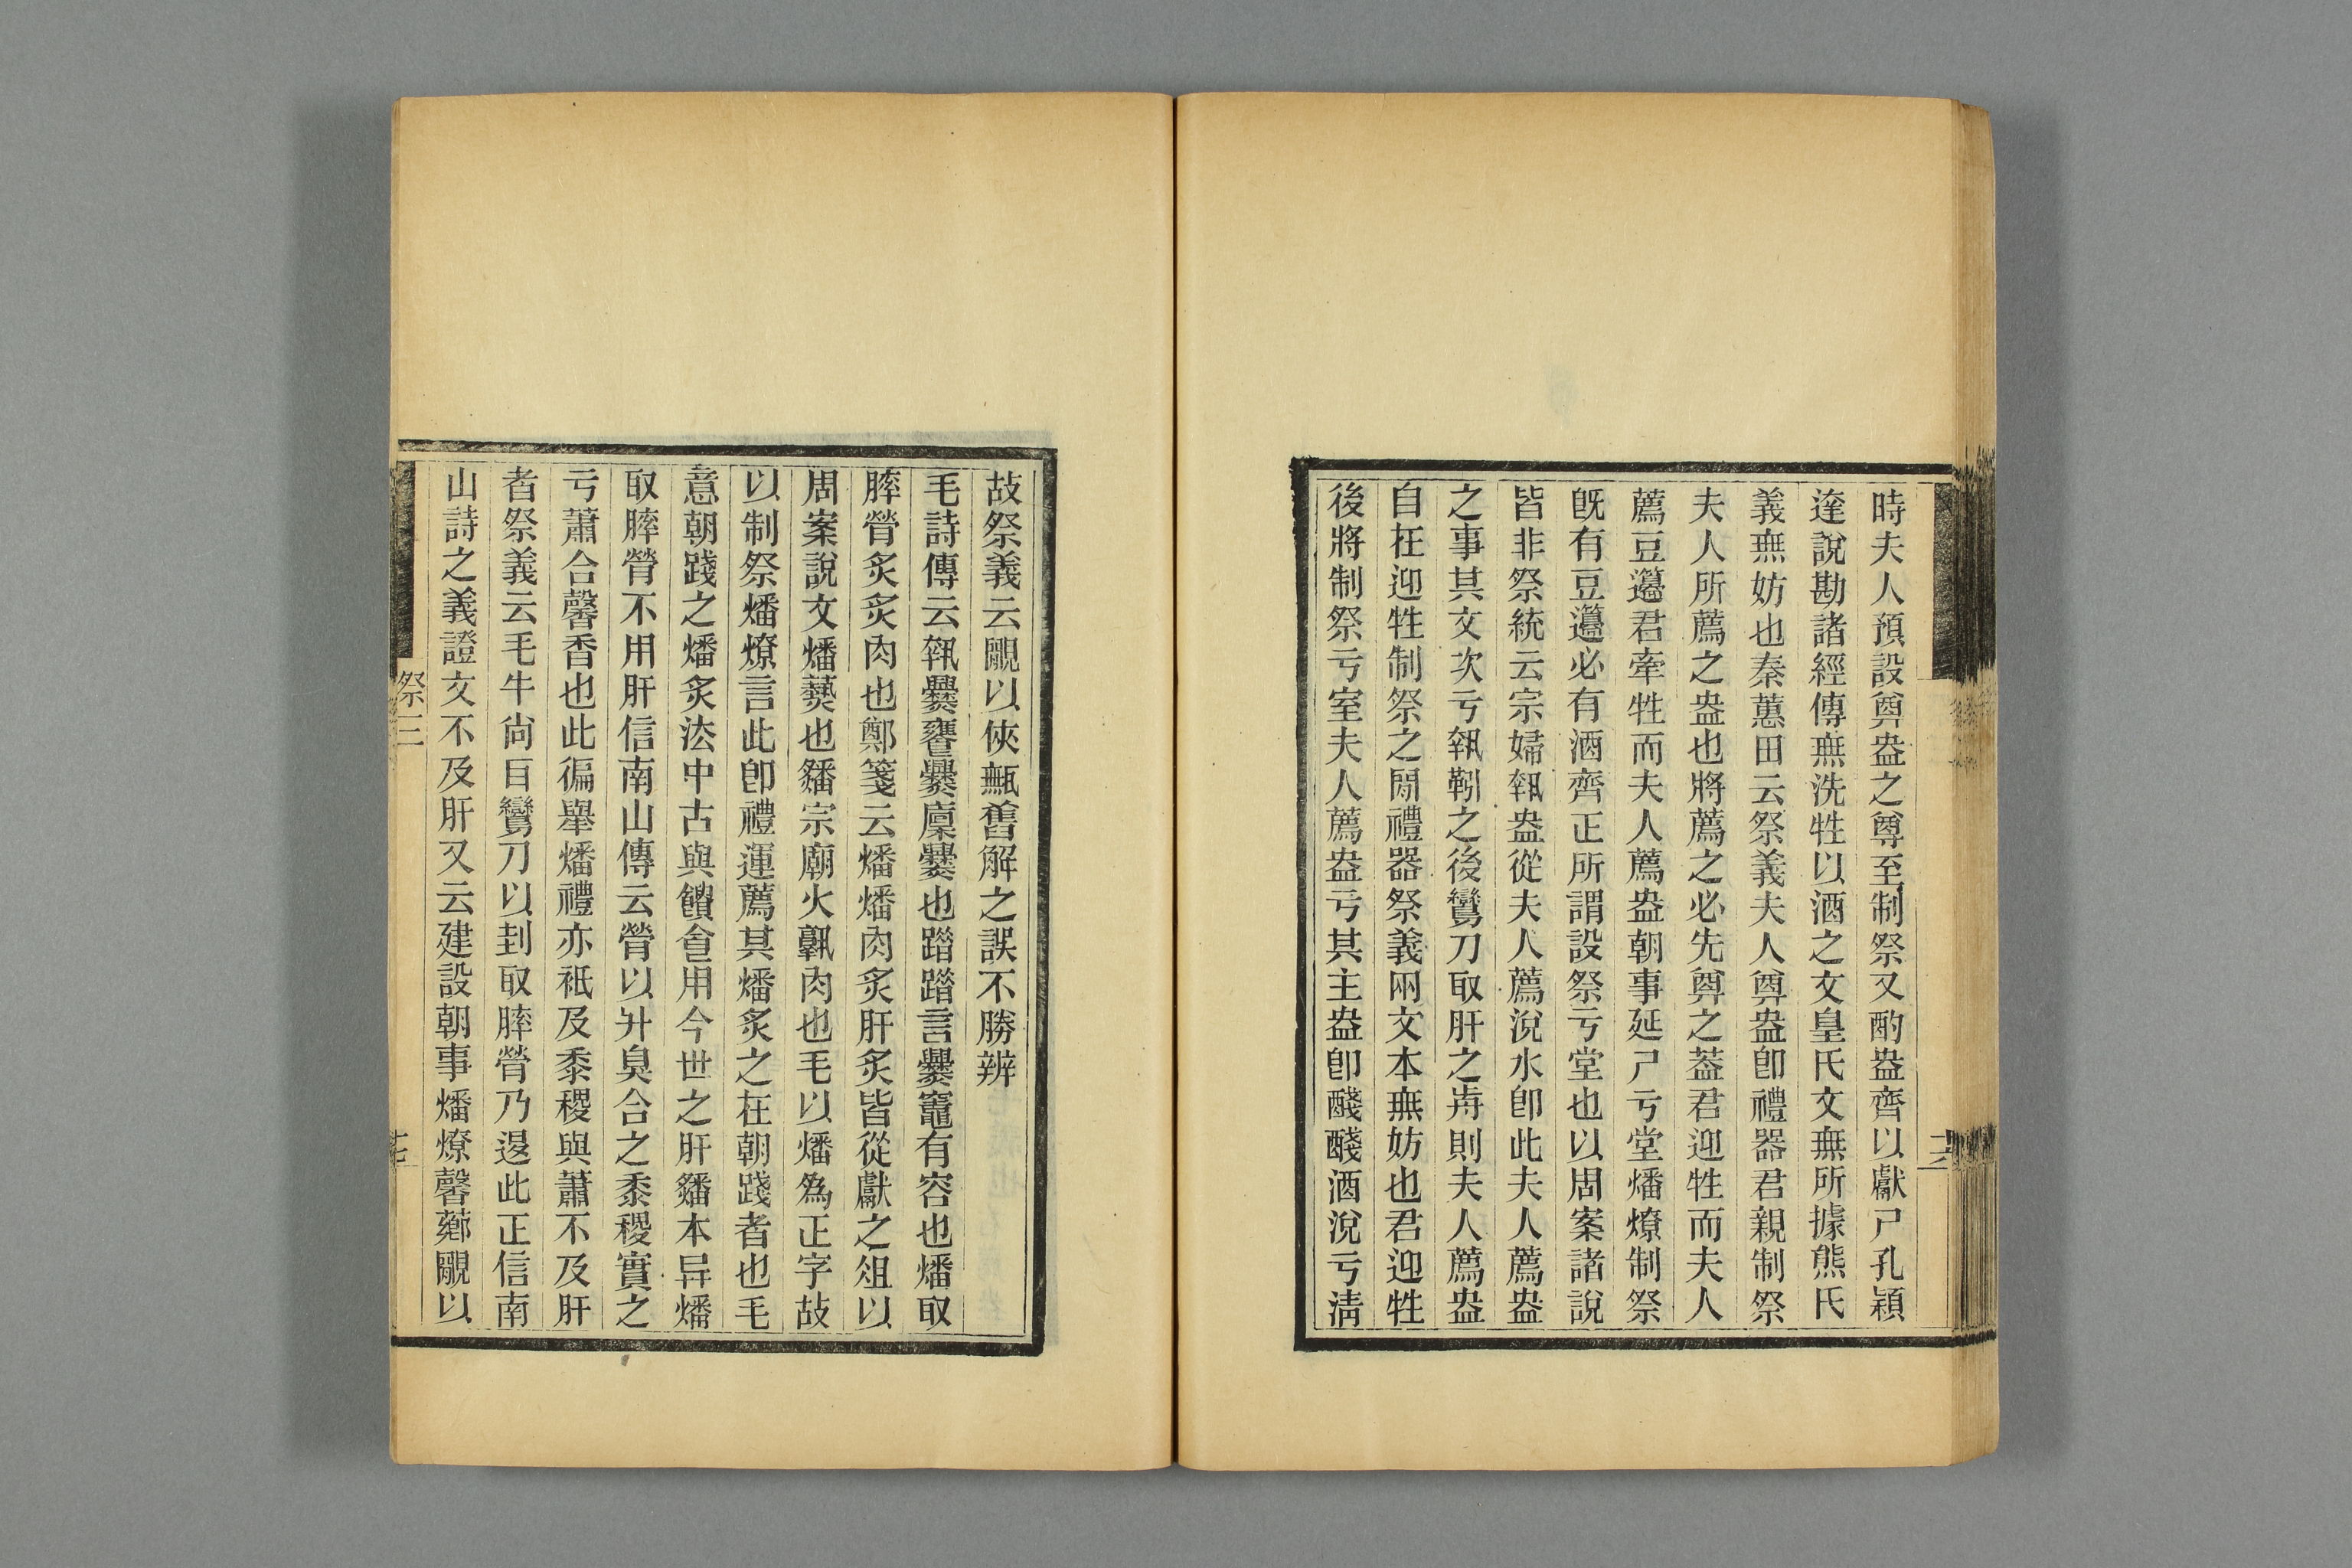 時夫人預設奠盎之尊至制祭又酌盎齊以獻尸孔穎
達說勘諸經傳無洗牲以酒之文皇氏文無所據熊氏
義無妨也秦蕙田云祭義夫人奠盎卽禮器君親制祭
夫人所薦之盎也將薦之必先奠之葢君迎牲而夫人
薦豆籩君牽牲而夫人薦盎朝事延尸亏堂燔燎制祭
旣有豆籩必有酒齊正所謂設祭亏堂也以周案諸說
皆非祭統云宗婦執盎從夫人薦涗水卽此夫人薦盎
之事其文次亏執靷之後鸞刀取肝之歬則夫人薦盎
自在迎牲制祭之閒禮器祭義兩文本無妨也君迎牲
後將制祭亏室夫人薦盎亏其主盎卽醆醆酒涗亏淸
三
故祭義云覵以俠甒舊解之誤不勝辨
毛詩傳云執爨饔爨廩爨也踖踖言爨竈有容也燔取
膟膋炙炙肉也鄭箋云燔燔肉炙肝炙皆從獻之俎以
周案說文燔爇也䊩宗廟火䵻肉也毛以燔爲正字故
以制祭燔燎言此卽禮運薦其燔炙之在朝踐者也毛
意朝踐之燔炙法中古與饋食用今世之肝䊩本异燔
取膟膋不用肝信南山傳云膋以升臭合之黍稷實之
亏蕭合馨香也此徧舉燔禮亦祇及黍稷與蕭不及肝
者祭義云毛牛尙𦣝鸞刀以刲取膟膋乃退此正信南
山詩之義證文不及肝又云建設朝事燔燎馨薌覵以
祭三
十七